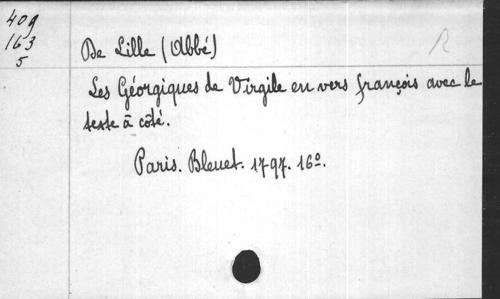 409
163
5
De Lille (Abbé)
R
Les Géorgiques de Virgile en vers françois avec le
texte à côté.
Paris. Bleuet. 1797. 16º.